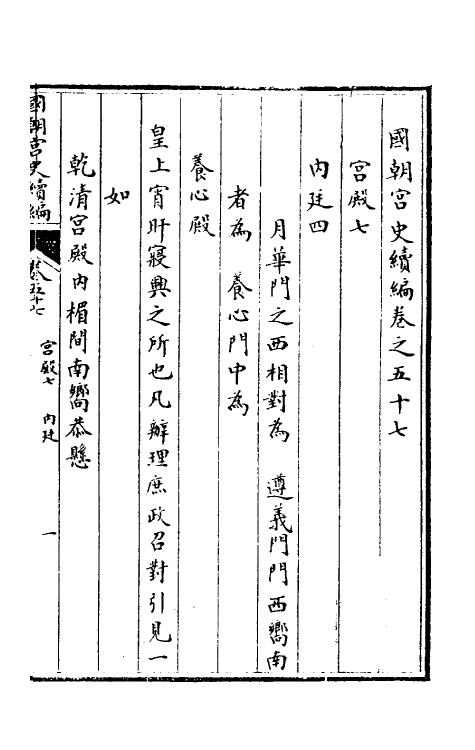 國朝宮史續編卷之五十七
宮殿七
內廷四
月華門之西相對為 遵義門門西嚮南
者為 養心門中為
養心殿
皇上宵旰寢興之所也凡辦理庶政召對引見一
如
乾清宮殿內楣間南嚮恭懸
國朝宮史續編 卷五十七 宮殿七 內廷 一